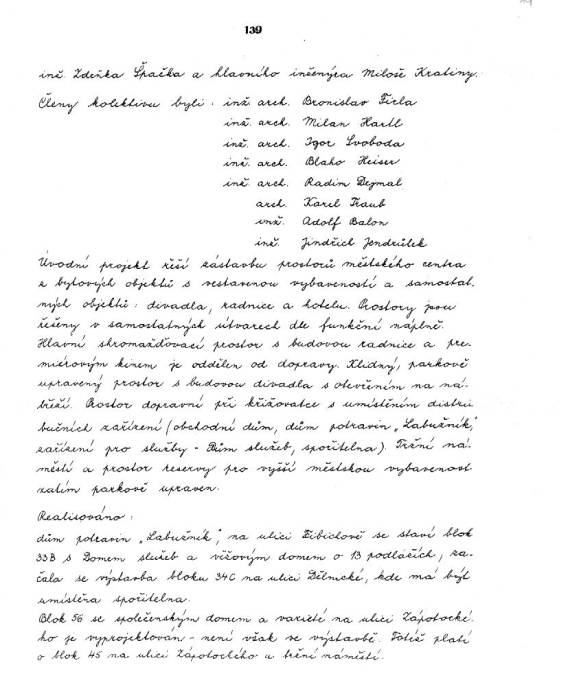 139
inž. Zdeňka Špačka a hlavního inženýra Miloše Kratiny.
Členy kolektivu byli: inž. arch. Bronislav Firla
inž. arch. Milan Hartl
inž. arch. Igor Svoboda
inž. arch. Blaho Heiser
inž. arch. Radim Dejmal
arch. Karel Traub
inž. Adolf Balon
inž. Jindřich Jendrůlek
Úvodní projekt řeší zástavbu prostorů městského centra
z bytových objektů s vestavenou vybaveností a samostat-
ných objektů: divadla, radnice a hotelu. Prostory jsou
řešeny v samostatných útvarech dle funkční náplně.
Hlavní shromažďovací prostor s budovou radnice a pre-
miérovým kinem je oddělen od dopravy. Klidný, parkově
upravený prostor s budovou divadla s otevřením na ná-
břeží. Prostor dopravní při křižovatce s umístěním distri-
bučních zařízení (obchodní dům, dům potravin „Labužník",
zařízení pro služby - Dům služeb, spořitelna). Tržní ná-
městí a prostor reservy pro vyšší městskou vybavenost
zatím parkově upraven.
Realisováno:
dům potravin „Labužník", na ulici Fibichově se staví blok
33B s Domem služeb a věžovým domem o 13 podlažích, za-
čala se výstavba bloku 34C na ulici Dělnické, kde má být
umístěna spořitelna.
Blok 56 se společenským domem a varieté na ulici Zápotocké-
ho je vyprojektován - není však ve výstavbě. Totéž platí
o blok 45 na ulici Zápotockého u tržní náměstí.